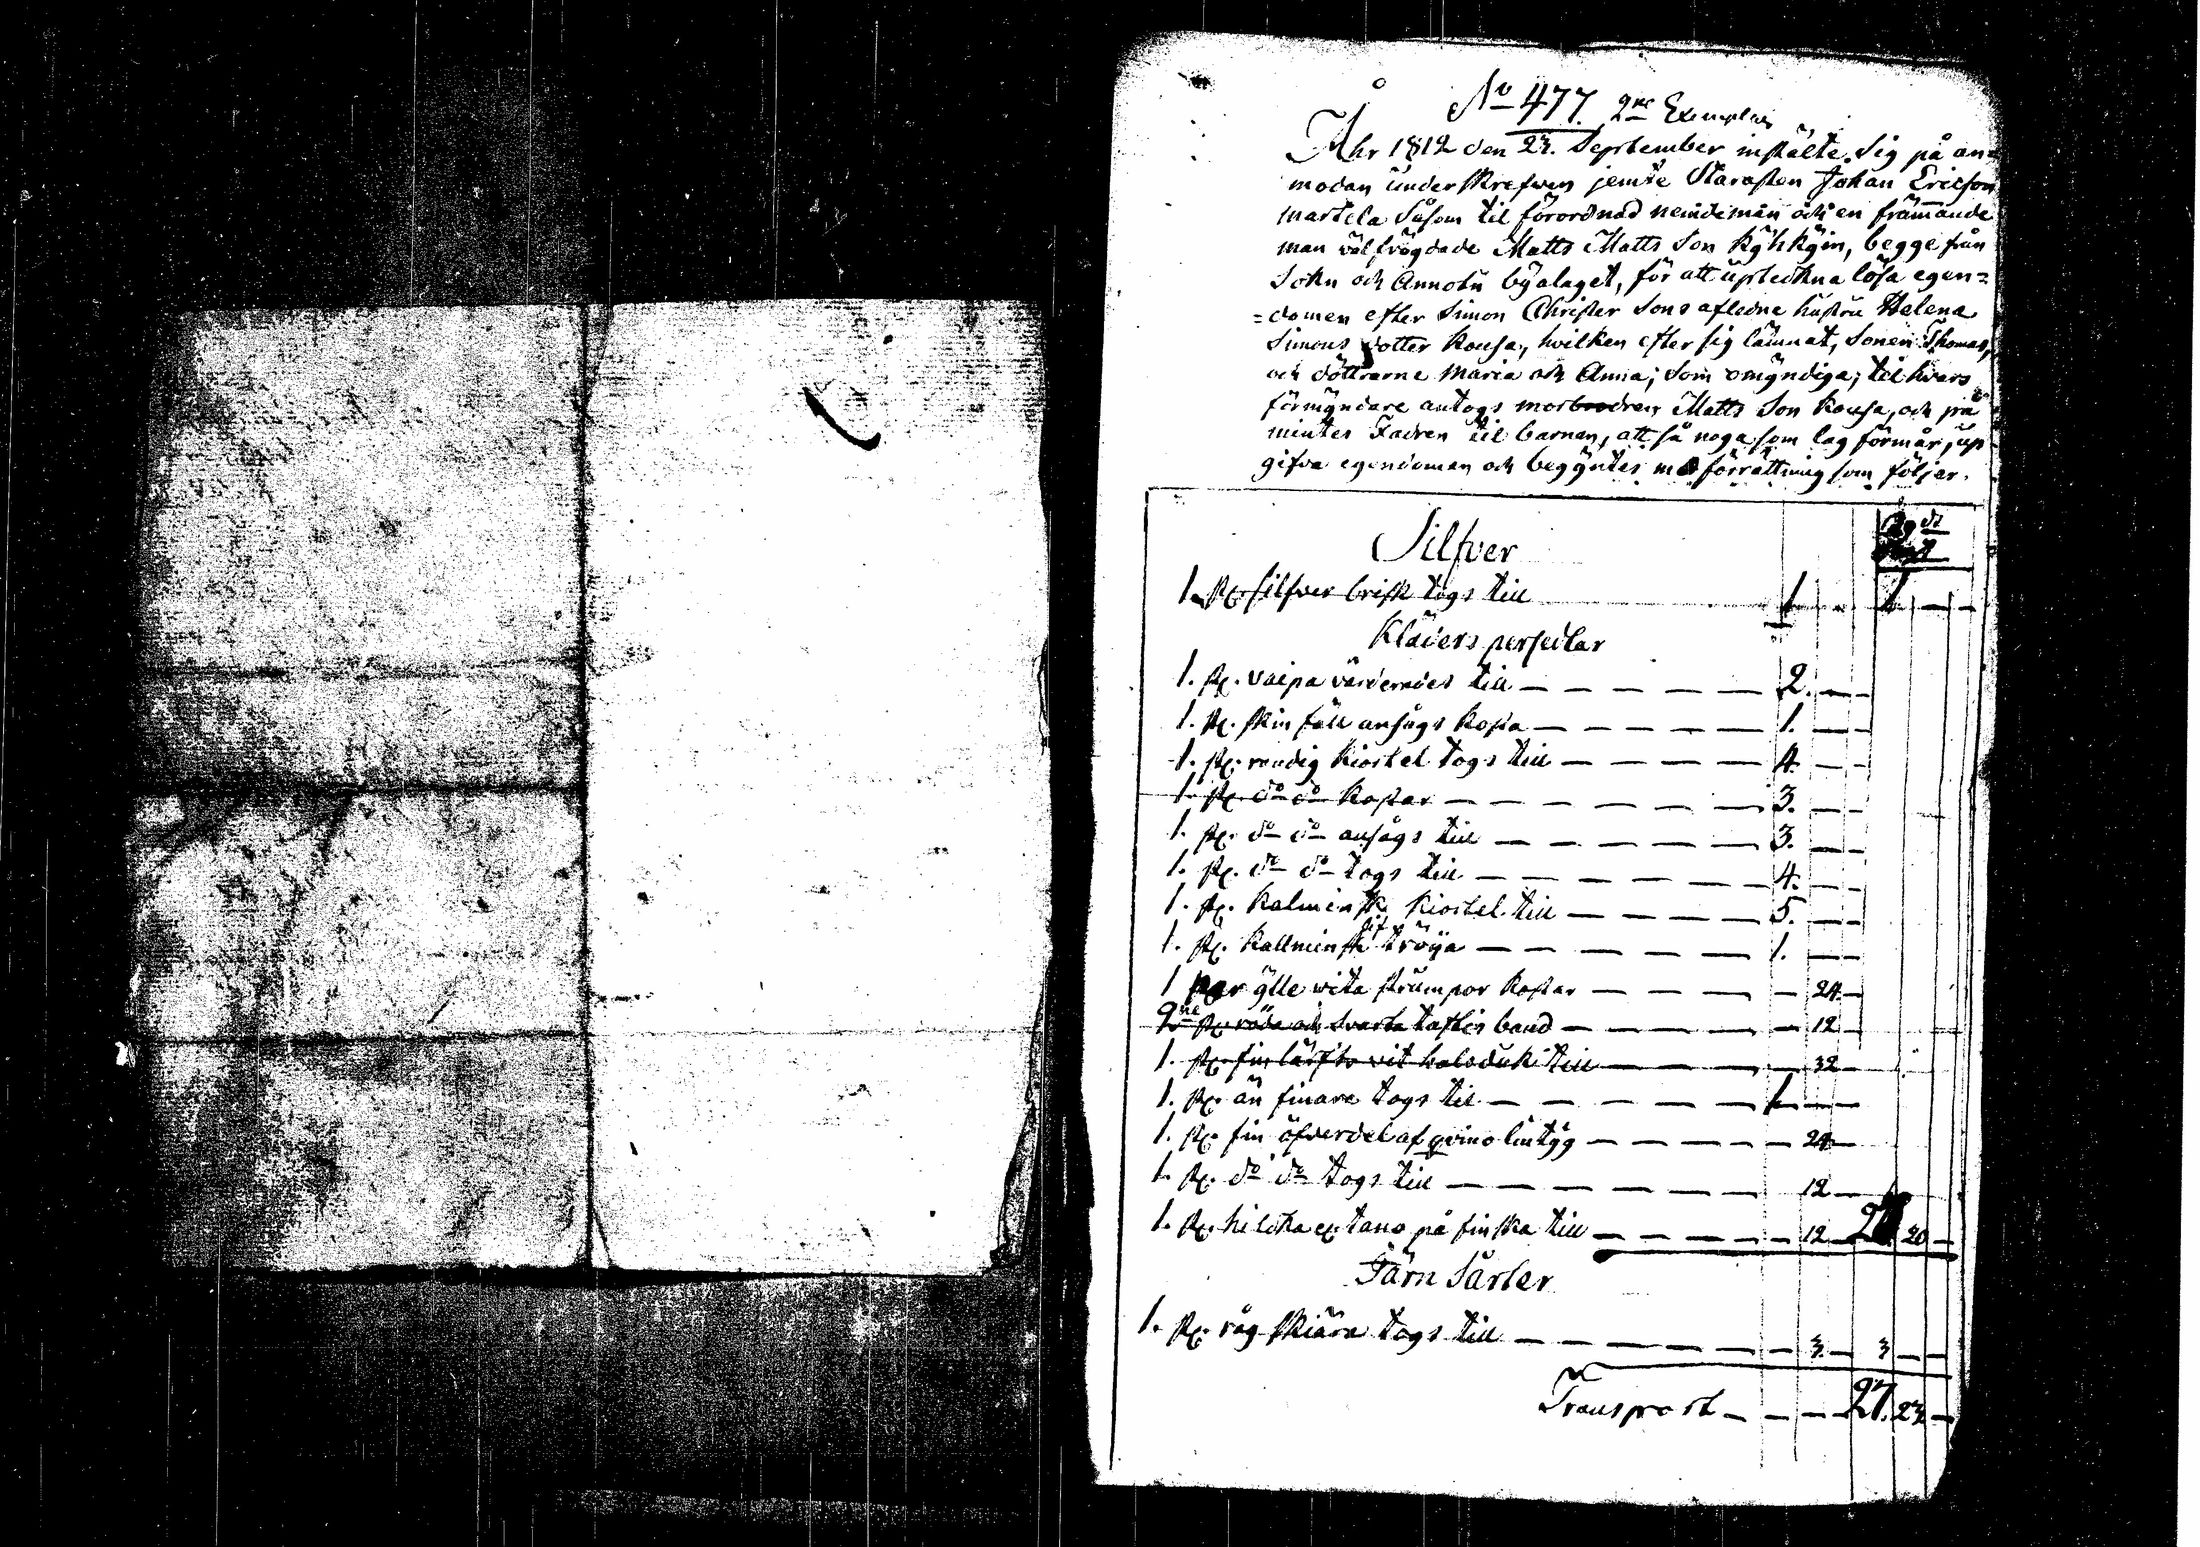 No 477. 2ne Exemplar
Åhr 1812 den 23. September instälte Sig på an=
modan underskrefven jemte Starosten Johan Ericson
martila Såsom til förordnad nemdeman och en främande
man välfrägdade Matts Matts Son Kyhkyin, begge från
och Annolu byalaget, för att upteckna lösa egen=
=domen efter Simon Christer Sons afledne hustru Helena
Simons dotter Kousa, hvilken efter sig lämnat, Sonen Thomas,
och döttrarne Maria och Anna; Som omyndiga; til hvars
förmyndare antogs morbrodren Matts Son Kousa, och på
mintes Fadren til barnen, att så noga som lag förmår, up
gifva egendomen och begyntes förrättning som följer.
Silfver
1. st. silfver brisk togs till 1 — — 1 — —
Kläders persedlar
1. st. vaipa värderades till — — — — — — 2. — —
1. st. skin fäll ansågs kosta — — — — — — 1. — —
1. st. randig kiortel togs till — — — — — 4. — —
1 st. do do kostar — — — — — — — 3. — —
1. st. do do ansågs till — — — — — — 3. — —
1. st. do do togs till — — — — — — — 4. — —
1. st. kalminsk kiortel till — — — — — 5. — —
1. st. kallminsk tröija — — — — — — — 1. — —
1 par ylle vita strumpor kostar — — — — — 24 —
2ne st. röda och svarta taftes band — — — — — — 12 —
1. st. fin lärfts vit halsduk till — — — — — 32 —
1. st. än finare togs til — — — — — — 1 — —
1. st. fin öfverdel af qvino lintyg — — — — — — 24 —
1. st. do do togs till — — — — — — — 12 —
1. st. på finska till — — — — — — 12 — 20 —
Järn Sårter
1. st. råg skiära togs till — — — — — — — 3 — 3 — —
Transport — — — 27. 23 —